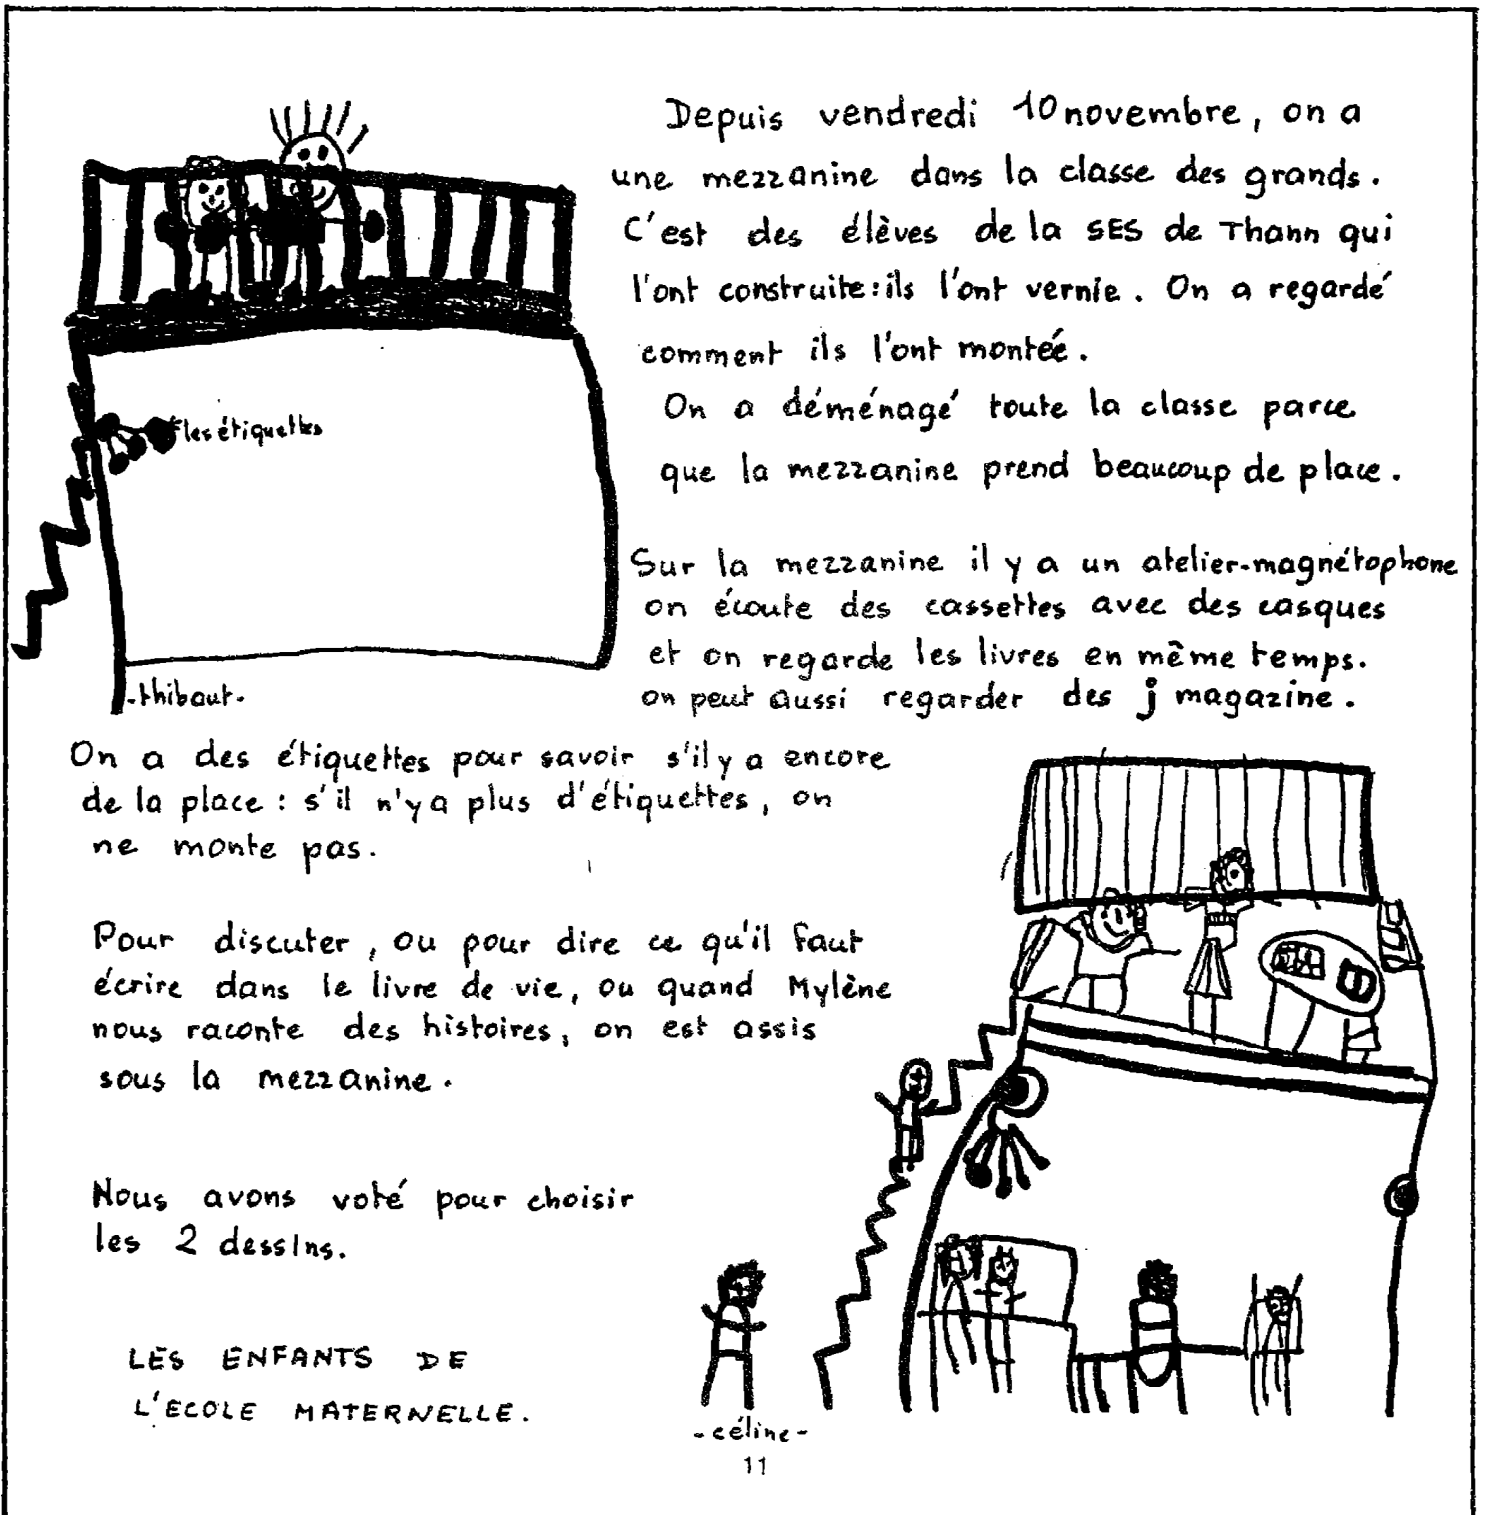 Depuis vendredi 10 novembre, on a
une mezzanine dans la classe des grands.
C'est des élèves de la SES de Thann qui
l'ont construite: ils l'ont vernie. On a regardé
comment ils l'ont montée.
On a déménagé toute la classe parce
que la mezzanine prend beaucoup de place.
les étiquettes
Sur la mezzanine il y a un atelier-magnétophone
on écoute des cassettes avec des casques
et on regarde les livres en même temps.
on peut aussi regarder des j magazine.
-thibaut-
On a des étiquettes pour savoir s'il y a encore
de la place : s'il n'y a plus d'étiquettes, on
ne monte pas.
Pour discuter, ou pour dire ce qu'il faut
écrire dans le livre de vie, ou quand Mylène
nous raconte des histoires, on est assis
sous la mezzanine.
Nous avons voté pour choisir
les 2 dessins.
LES ENFANTS DE
L'ECOLE MATERNELLE.
-céline-
11